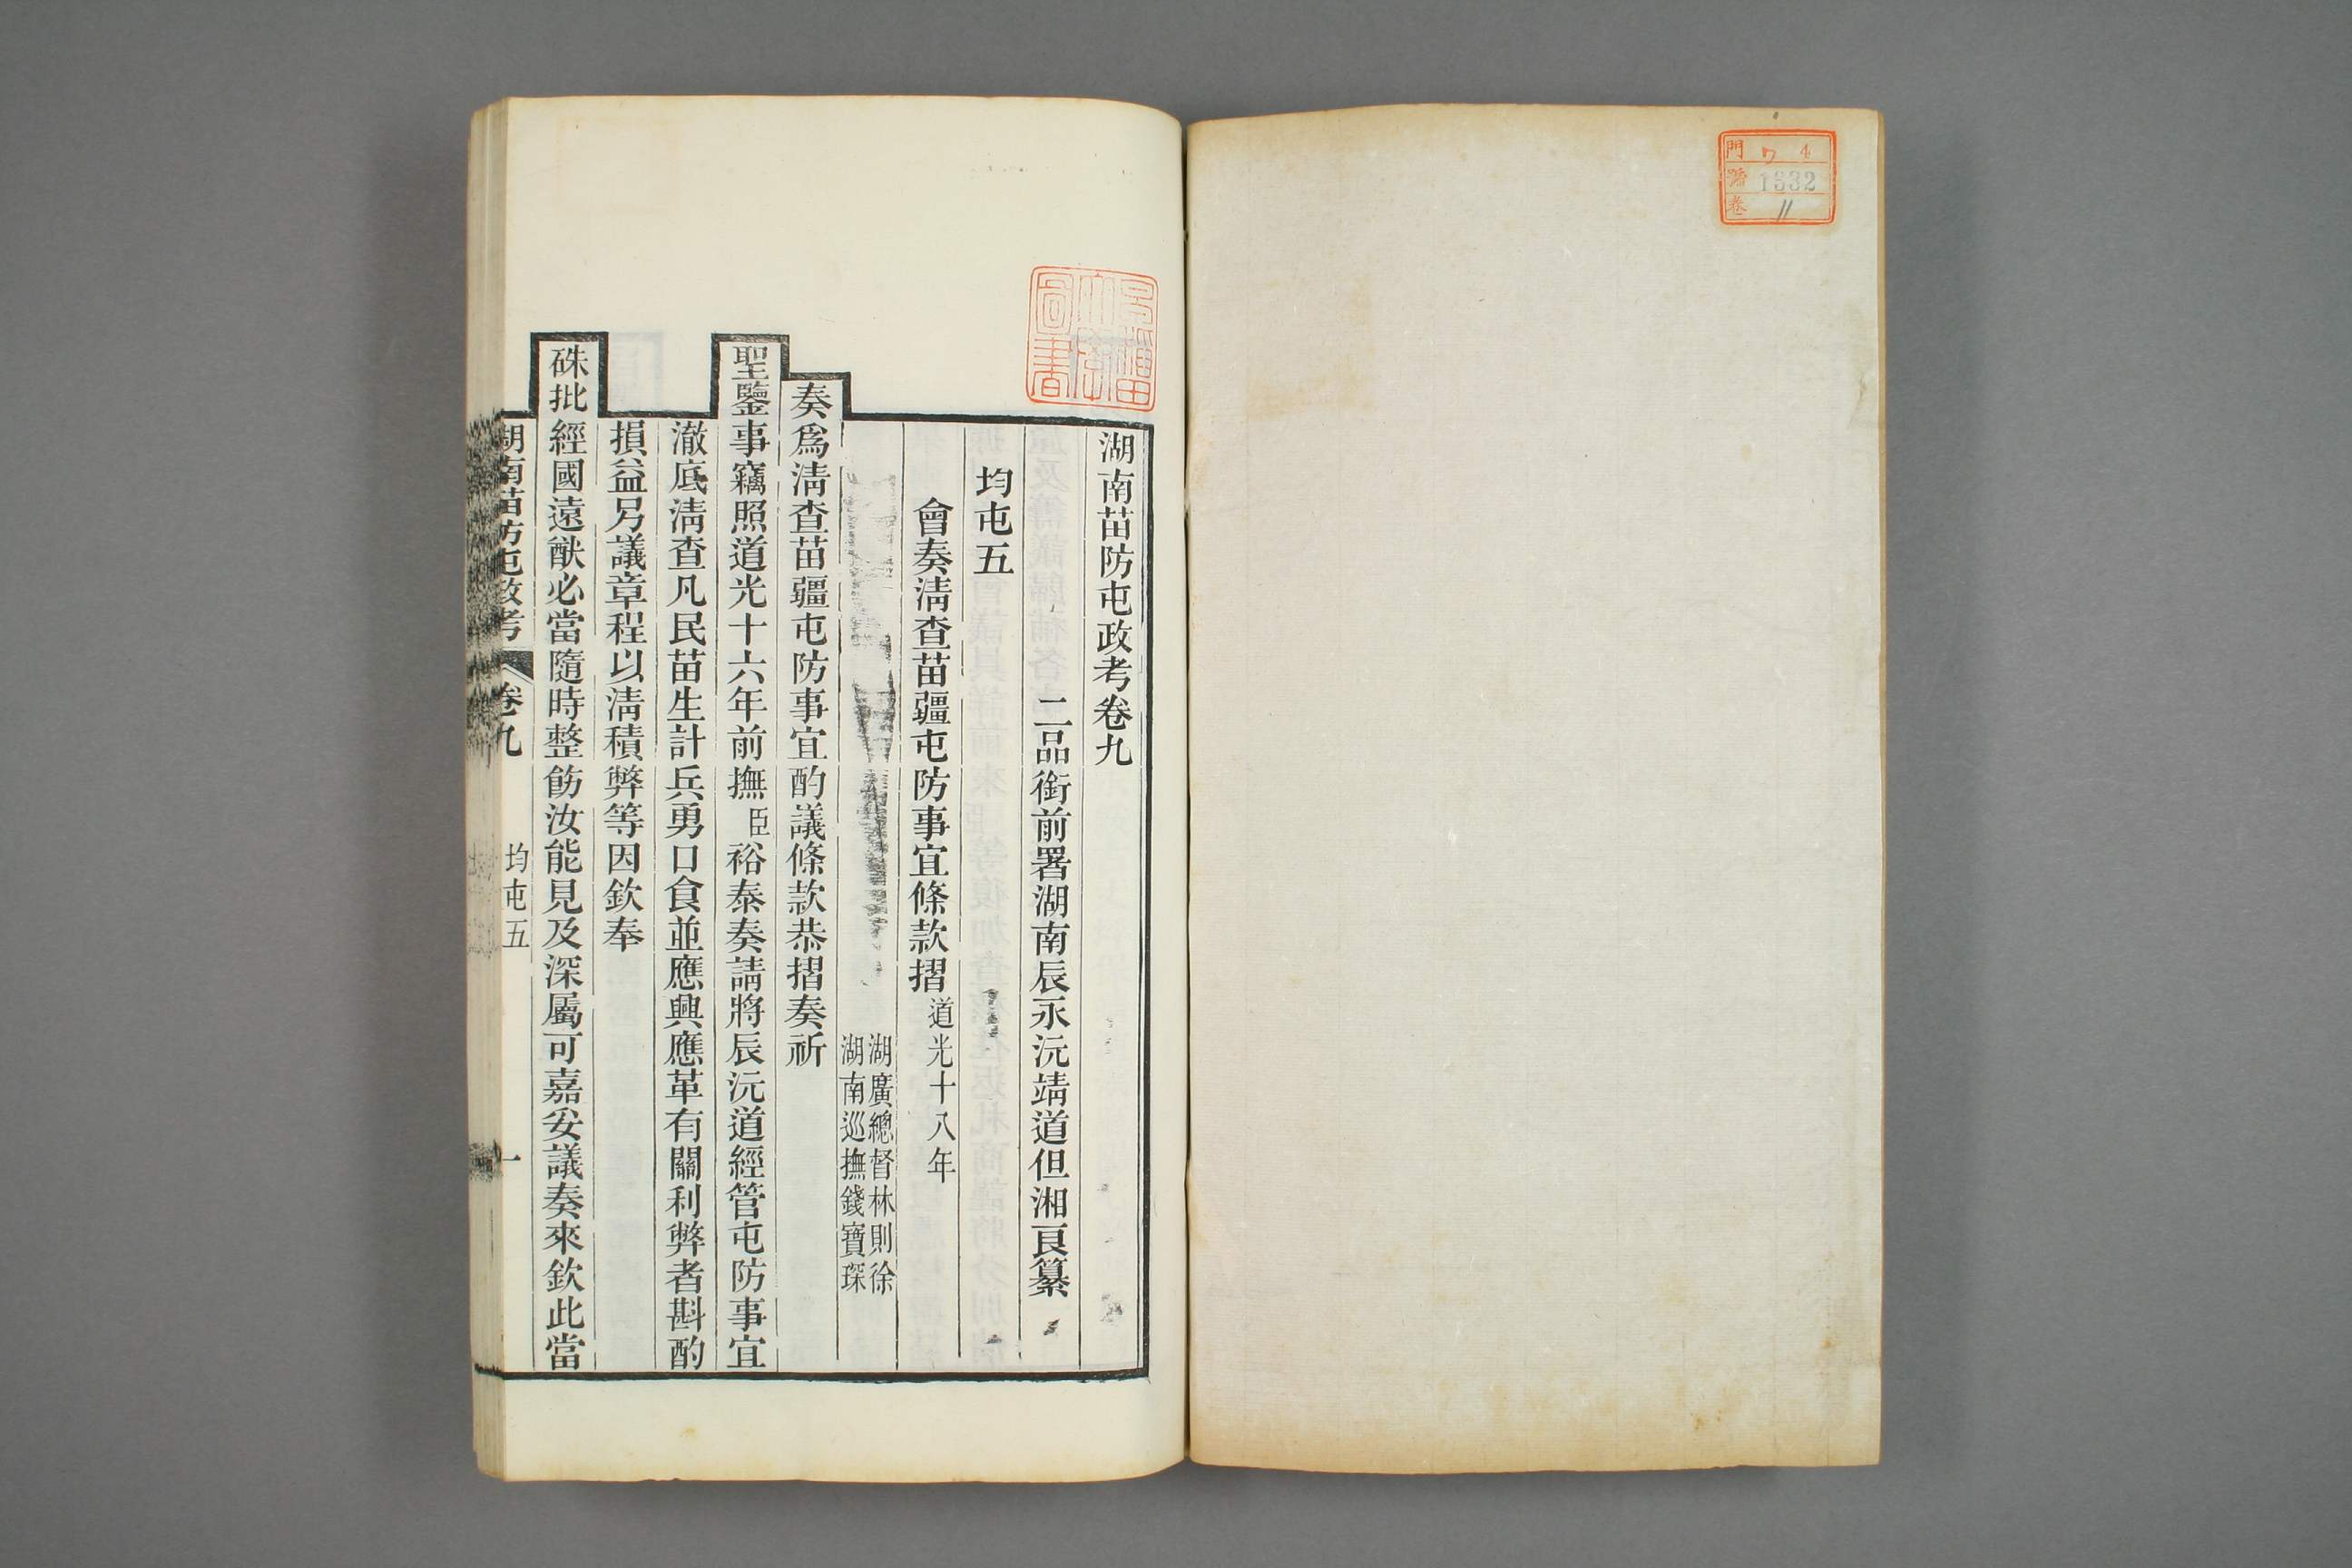 門 ワ 4
號 1632
卷 11
湖南苗防屯政考卷九
二品銜前署湖南辰永沅靖道但湘良纂
均屯五
會奏清查苗疆屯防事宜條款摺道光十八年
湖廣總督林則徐
湖南巡撫錢寶琛
奏爲清查苗疆屯防事宜酌議條款恭摺奏祈
聖鑒事竊照道光十六年前撫臣裕泰奏請將辰沅道經管屯防事宜
澈底清查凡民苗生計兵勇口食並應興應革有關利弊者斟酌
損益另議章程以清積弊等因欽奉
硃批經國遠猷必當隨時整飭汝能見及深屬可嘉妥議奏來欽此當
湖南苗防屯政考 卷九 均屯五 一
圖書